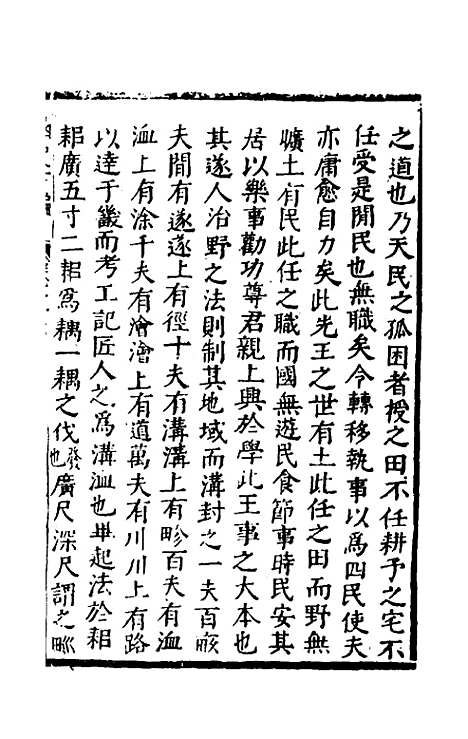 之道也乃天民之孤困者授之田不任耕予之宅不
任受是閒民也無職矣今轉移執事以爲四民使夫
亦庸愈自力矣此先王之世有土此任之田而野無
曠土有民此任之職而國無遊民食節事時民安其
居以樂事勸功尊君親上興於學此王事之大本也
其遂人治野之法則制其地域而溝封之一夫百畝
夫間有遂遂上有徑十夫有溝溝上有畛百夫有洫
洫上有涂千夫有澮澮上有道萬夫有川川上有路
以達于畿而考工記匠人之爲溝洫也畢起法於耜
耜廣五寸二耜爲耦一耦之伐發也廣尺深尺謂之𤰕